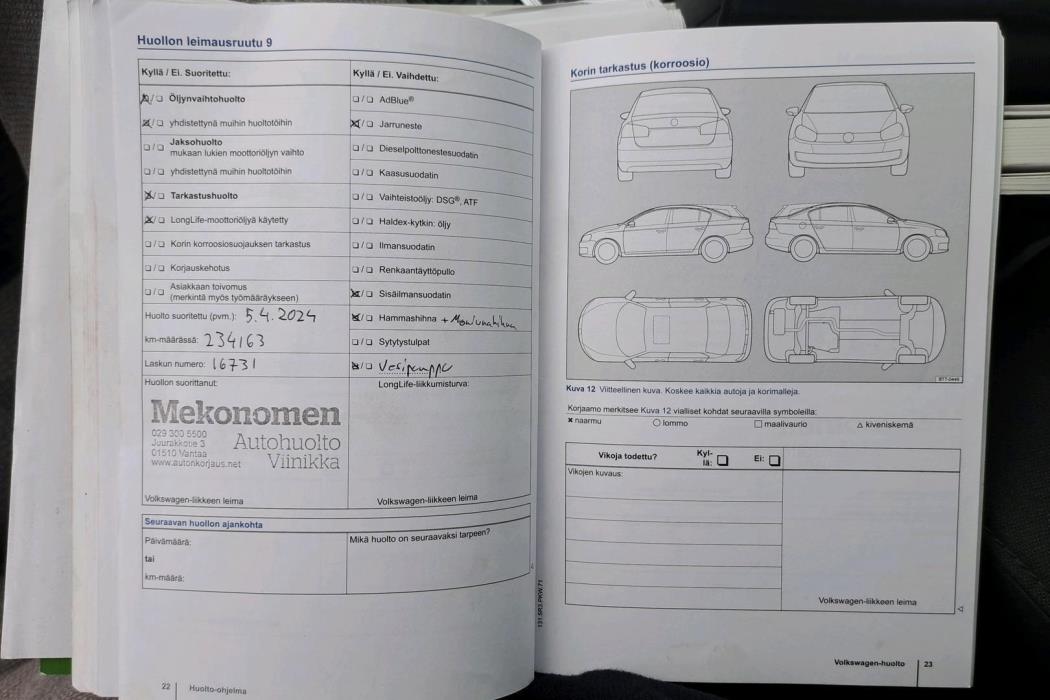 Huollon leimausruutu 9
Kyllä / Ei. Suoritettu:
Öljynvaihtohuolto
yhdistettynä muihin huoltotöihin
Jaksohuolto
mukaan lukien moottoriöljyn vaihto
yhdistettynä muihin huoltotöihin
Tarkastushuolto
LongLife-moottoriöljyä käytetty
Korin korroosiosuojauksen tarkastus
Korjauskehotus
Asiakkaan toivomus
(merkintä myös työmääräykseen)
Huolto suoritettu (pvm.): 5.4.2024
km-määrässä: 234163
Laskun numero: 16731
Huollon suorittanut:
Mekonomen
029 300 5500
Juurakkotie 3
01510 Vantaa
www.autonkorjaus.net
Autohuolto
Viinikka
Volkswagen-liikkeen leima
Kyllä / Ei. Vaihdettu:
AdBlue®
Jarruneste
Dieselpolttonestesuodatin
Kaasusuodatin
Vaihteistoöljy: DSG®, ATF
Haldex-kytkin: öljy
Ilmansuodatin
Renkaantäyttöpullo
Sisäilmansuodatin
Hammashihna + Moniurahihna
Sytytystulpat
Vesipumppu
LongLife-liikkumisturva:
Volkswagen-liikkeen leima
Seuraavan huollon ajankohta
Päivämäärä:
tai
km-määrä:
Mikä huolto on seuraavaksi tarpeen?
22 Huolto-ohjelma
131.5R3.PKW.71
Korin tarkastus (korroosio)
Kuva 12 Viitteellinen kuva. Koskee kaikkia autoja ja korimalleja.
Korjaamo merkitsee Kuva 12 vialliset kohdat seuraavilla symboleilla:
naarmu
lommo
maalivaurio
kiveniskemä
Vikoja todettu?
Kyl-
lä:
Ei:
Vikojen kuvaus:
Volkswagen-liikkeen leima
Volkswagen-huolto 23